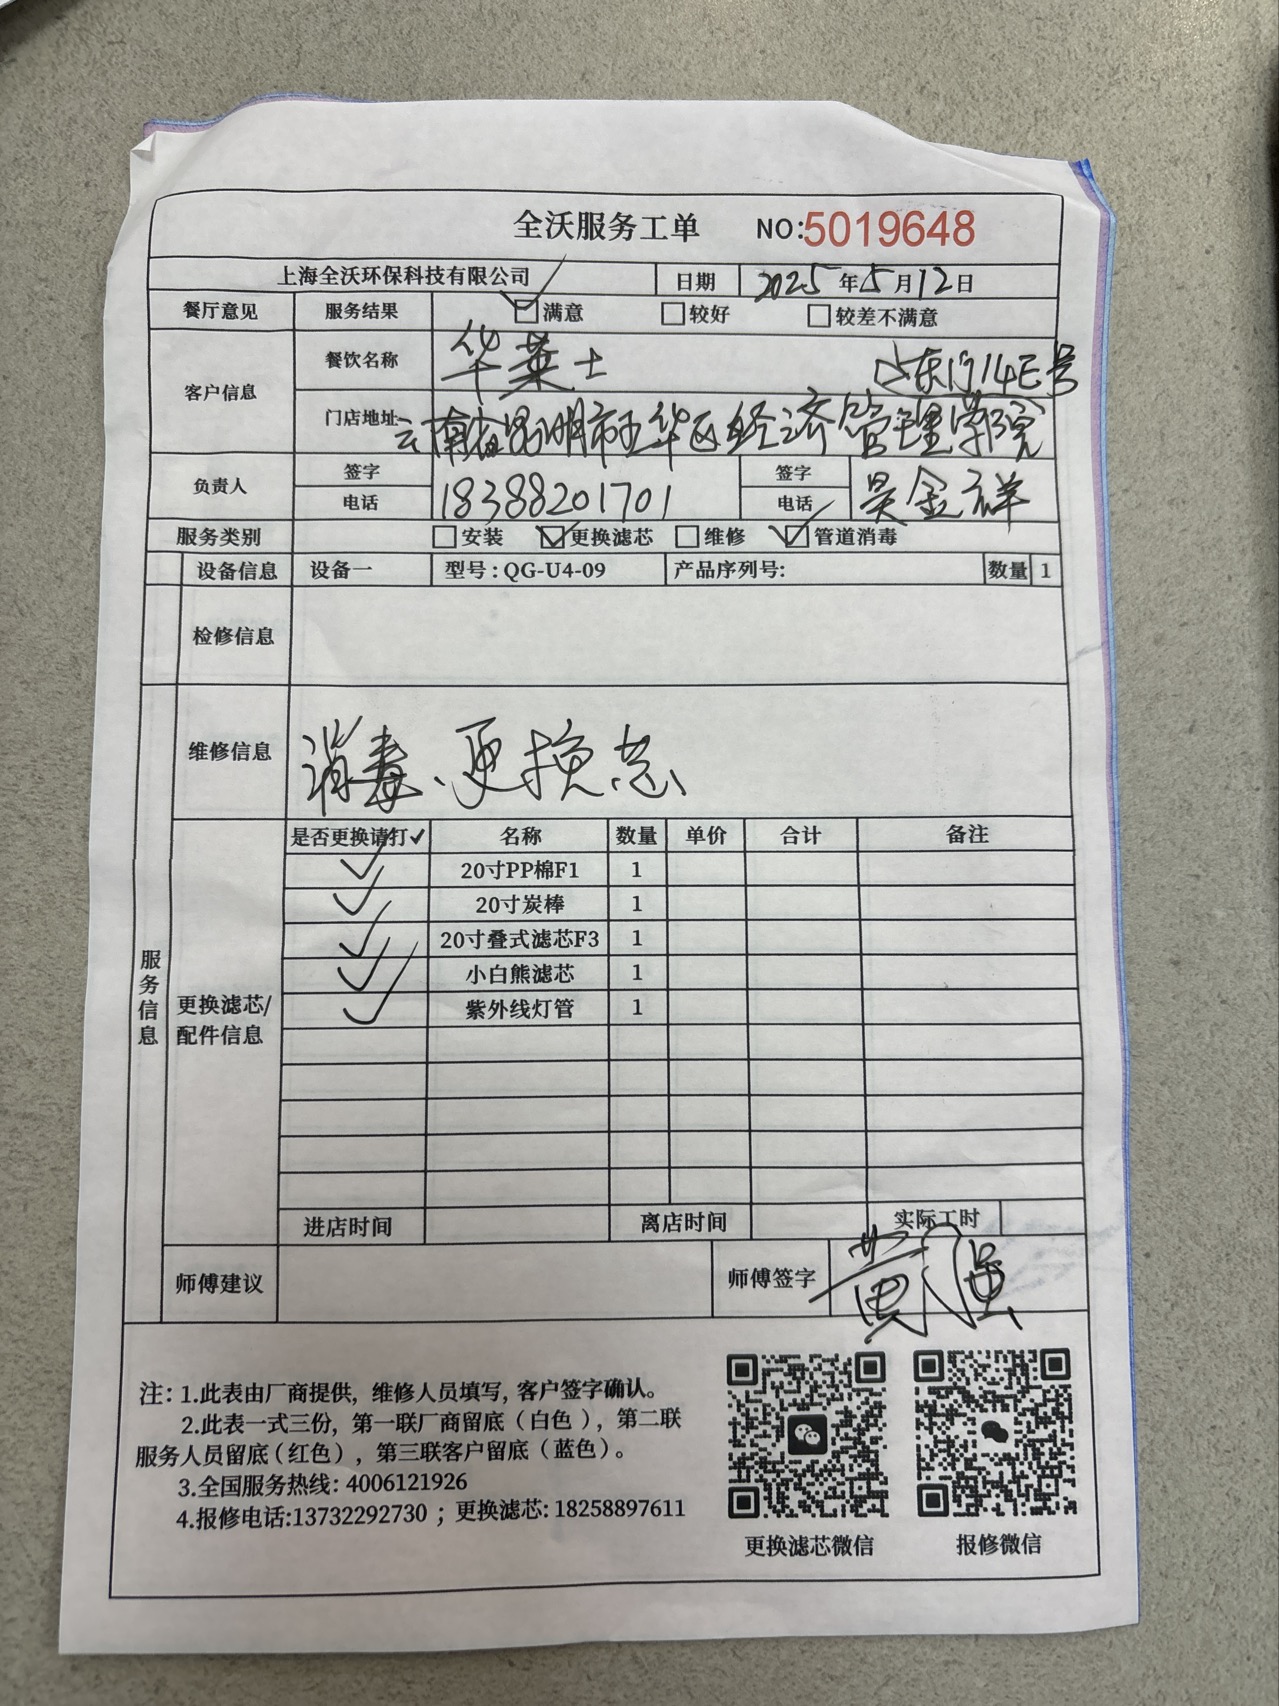 全沃服务工单 NO:5019648
上海全沃环保科技有限公司 日期 2025年5月12日
餐厅意见 服务结果 满意 较好 较差不满意
客户信息 餐饮名称 华莱士 号
门店地址 云南省昆明市五华区经济管理学院
负责人 签字 签字
电话 18388201701 电话 吴金祥
服务类别 安装 更换滤芯 维修 管道消毒
设备信息 设备一 型号:QG-U4-09 产品序列号: 数量 1
检修信息
维修信息 消毒、更换芯
是否更换请打✓ 名称 数量 单价 合计 备注
✓ 20寸PP棉F1 1
✓ 20寸炭棒 1
✓ 20寸叠式滤芯F3 1
✓ 小白熊滤芯 1
✓ 紫外线灯管 1
服务信息
更换滤芯/
配件信息
进店时间 离店时间 实际工时
师傅建议 师傅签字 黄 强
注: 1.此表由厂商提供, 维修人员填写, 客户签字确认。
2.此表一式三份, 第一联厂商留底(白色), 第二联
服务人员留底(红色), 第三联客户留底(蓝色)。
3.全国服务热线: 4006121926
4.报修电话:13732292730 ; 更换滤芯: 18258897611
更换滤芯微信 报修微信